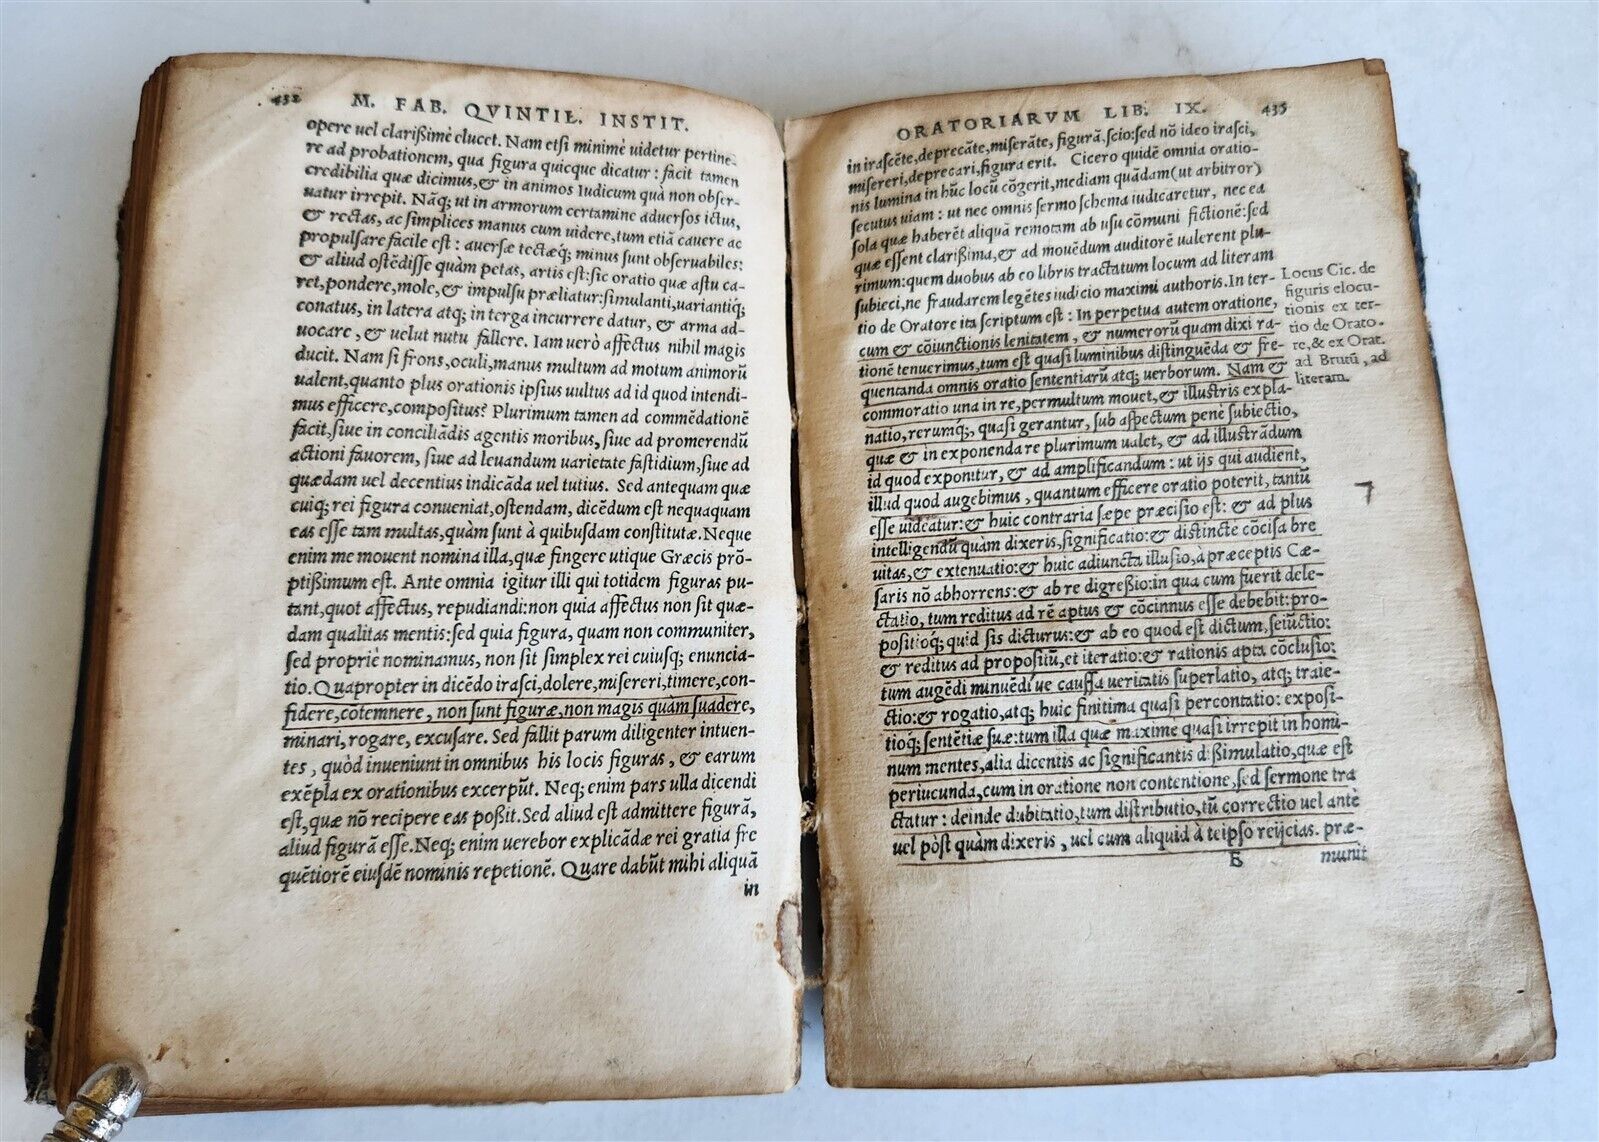 432 M. FAB. QVINTIL. INSTIT.
opere uel clarißimè elucet. Nam etsi minimè uidetur pertine-
re ad probationem, qua figura quicque dicatur: facit tamen
credibilia quæ dicimus, & in animos Iudicum quà non obser-
uatur irrepit. Nāq; ut in armorum certamine aduersos ictus,
& rectas, ac simplices manus cum uidere, tum etiā cauere ac
propulsare facile est: auersæ tectæq́; minus sunt obseruabiles:
& aliud ostēdisse quàm petas, artis est: sic oratio quæ astu ca-
ret, pondere, mole, & impulsu præliatur: simulanti, uariantiq́;
conatus, in latera atq; in terga incurrere datur, & arma ad-
uocare, & uelut nutu fallere. Iam uerò affectus nihil magis
ducit. Nam si frons, oculi, manus multum ad motum animorū
ualent, quanto plus orationis ipsius uultus ad id quod intendi-
mus efficere, compositus? Plurimum tamen ad commēdationē
facit, siue in conciliādis agentis moribus, siue ad promerendū
actioni fauorem, siue ad leuandum uarietate fastidium, siue ad
quædam uel decentius indicāda uel tutius. Sed antequam quæ
cuiq; rei figura conueniat, ostendam, dicēdum est nequaquam
eas esse tam multas, quàm sunt à quibusdam constitutæ. Neque
enim me mouent nomina illa, quæ fingere utique Græcis prō-
ptißimum est. Ante omnia igitur illi qui totidem figuras pu-
tant, quot affectus, repudiandi: non quia affectus non sit quæ-
dam qualitas mentis: sed quia figura, quam non communiter,
sed propriè nominamus, non sit simplex rei cuiusq; enuncia-
tio. Quapropter in dicēdo irasci, dolere, misereri, timere, con-
fidere, cōtemnere, non sunt figuræ, non magis quàm suadere,
minari, rogare, excusare. Sed fallit parum diligenter intuen-
tes, quòd inueniunt in omnibus his locis figuras, & earum
exēpla ex orationibus excerpūt. Neq; enim pars ulla dicendi
est, quæ nō recipere eas poßit. Sed aliud est admittere figurā,
aliud figurā esse. Neq; enim uerebor explicādæ rei gratia fre
quētiorē eiusdē nominis repetionē. Quare dabūt mihi aliquā
in
ORATORIARVM LIB. IX. 435
in irascēte, deprecāte, miserāte, figurā. scio: sed nō ideo irasci,
misereri, deprecari, figura erit. Cicero quidē omnia oratio-
nis lumina in hūc locū cōgerit, mediam quādam (ut arbitror)
secutus uiam: ut nec omnis sermo schema iudicaretur, nec ea
sola quæ haberēt aliquā remotam ab usu cōmuni fictionē: sed
quæ essent clarißima, & ad mouēdum auditorē ualerent plu-
rimum: quem duobus ab eo libris tractatum locum ad literam
subieci, ne fraudarem legētes iudicio maximi authoris. In ter-
tio de Oratore ita scriptum est: In perpetua autem oratione,
cum & cōiunctionis lenitatem, & numerorū quam dixi ra-
tionē tenuerimus, tum est quasi luminibus distinguēda & fre-
quentanda omnis oratio sententiarū atq; uerborum. Nam &
commoratio una in re, permultum mouet, & illustris expla-
natio, rerumq;, quasi gerantur, sub aspectum penè subiectio,
quæ & in exponenda re plurimum ualet, & ad illustrādum
id quod exponitur, & ad amplificandum: ut ijs qui audient,
illud quod augebimus, quantum efficere oratio poterit, tantū
esse uideatur: & huic contraria sæpe præcisio est: & ad plus
intelligendū quàm dixeris, significatio: & distincte cōcisa bre
uitas, & extenuatio: & huic adiuncta illusio, à præceptis Cæ-
saris nō abhorrens: & ab re digreßio: in qua cum fuerit dele-
ctatio, tum reditus ad rē aptus & cōcinnus esse debebit: pro-
positioq́; quid sis dicturus: & ab eo quod est dictum, seiūctio:
& reditus ad propositū, et iteratio: & rationis apta cōclusio:
tum augēdi minuēdi ue caussa ueritatis superlatio, atq; traie-
ctio: & rogatio, atq; huic finitima quasi percontatio: exposi-
tioq́; sentētiæ suæ: tum illa quæ maxime quasi irrepit in homi-
num mentes, alia dicentis ac significantis dißimulatio, quæ est
periucunda, cum in oratione non contentione, sed sermone tra
ctatur: deinde dubitatio, tum distributio, tū correctio uel antè
uel pòst quàm dixeris, uel cum aliquid à teipso reijcias. præ-
E munit
Locus Cic. de
figuris elocu-
tionis ex ter-
tio de Orato-
re, & ex Orat.
ad Brutū, ad
literam.